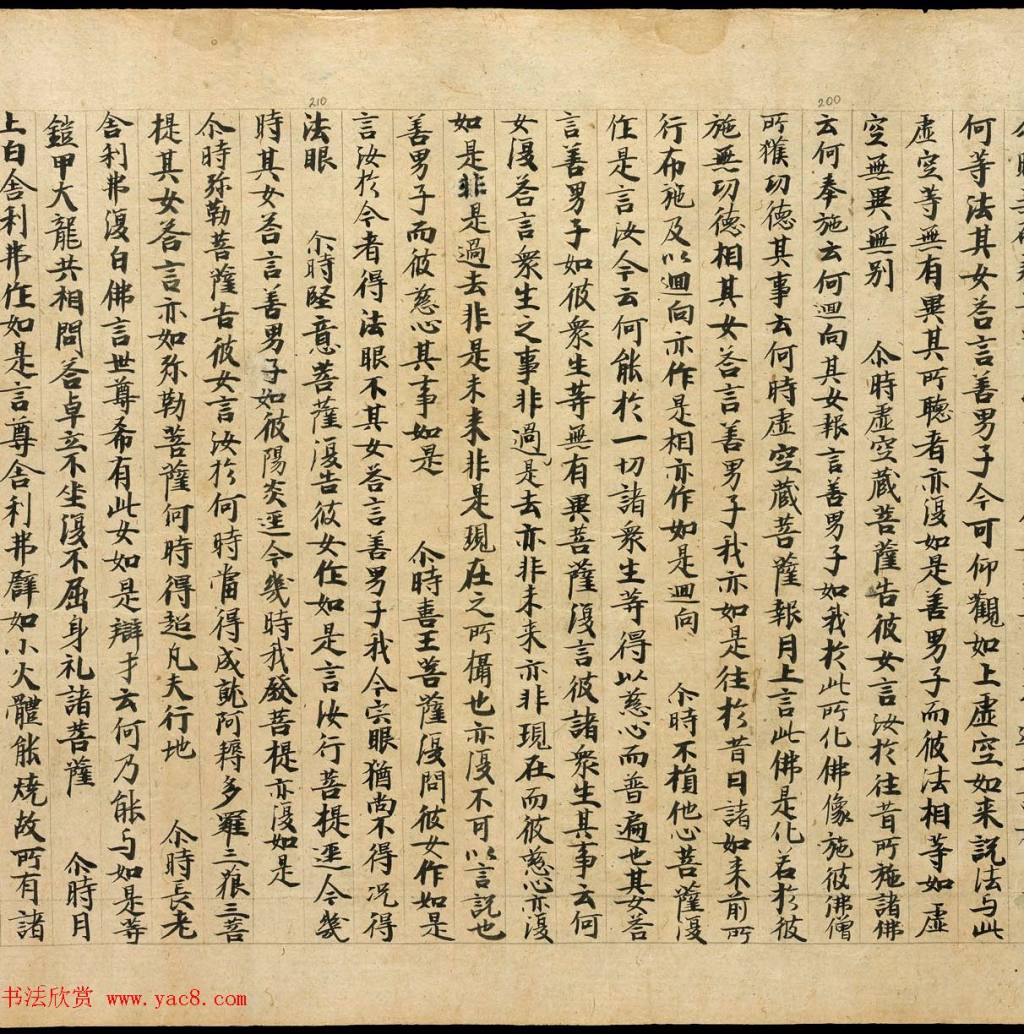 何等法其女答言善男子今可仰觀如上虛空如来説法与此
虛空等無有異其所聽者亦復如是善男子而彼法相等如虛
空無異無別 尒時虛空藏菩薩告彼女言汝於往昔所施諸佛
200
云何奉施云何迴向其女報言善男子如我於此所化佛像施彼佛僧
所獲功德其事云何時虛空藏菩薩報月上言此佛是化若於彼
施無功德相其女答言善男子我亦如是往於昔日諸如来前所
行布施及以迴向亦作是相亦作如是迴向 尒時不損他心菩薩復
作是言汝今云何能於一切諸衆生等得以慈心而普遍也其女答
言善男子如彼衆生等無有異菩薩復言彼諸衆生其事云何
女復答言衆生之事非過是去亦非未来亦非現在而彼慈心亦復
如是非是過去非是未来非是現在之所攝也亦復不可以言說也
善男子而彼慈心其事如是 尒時喜王菩薩復問彼女作如是
言汝於今者得法眼不其女答言善男子我今宍眼猶尚不得况得
210
法眼 尒時堅意菩薩復告彼女作如是言汝行菩提逕今幾
時其女答言善男子如彼陽炎逕今幾時我發菩提亦復如是
尒時弥勒菩薩告彼女言汝於何時當得成就阿耨多羅三藐三菩
提其女答言亦如弥勒菩薩何時得超凡夫行地 尒時長老
舍利弗復白佛言世尊希有此女如是辯才云何乃能与如是等
鎧甲大龍共相問答卓立不坐復不屈身礼諸菩薩 尒時月
上白舍利弗作如是言尊舍利弗譬如小火體能燒故所有諸
书法欣赏 www.yac8.com